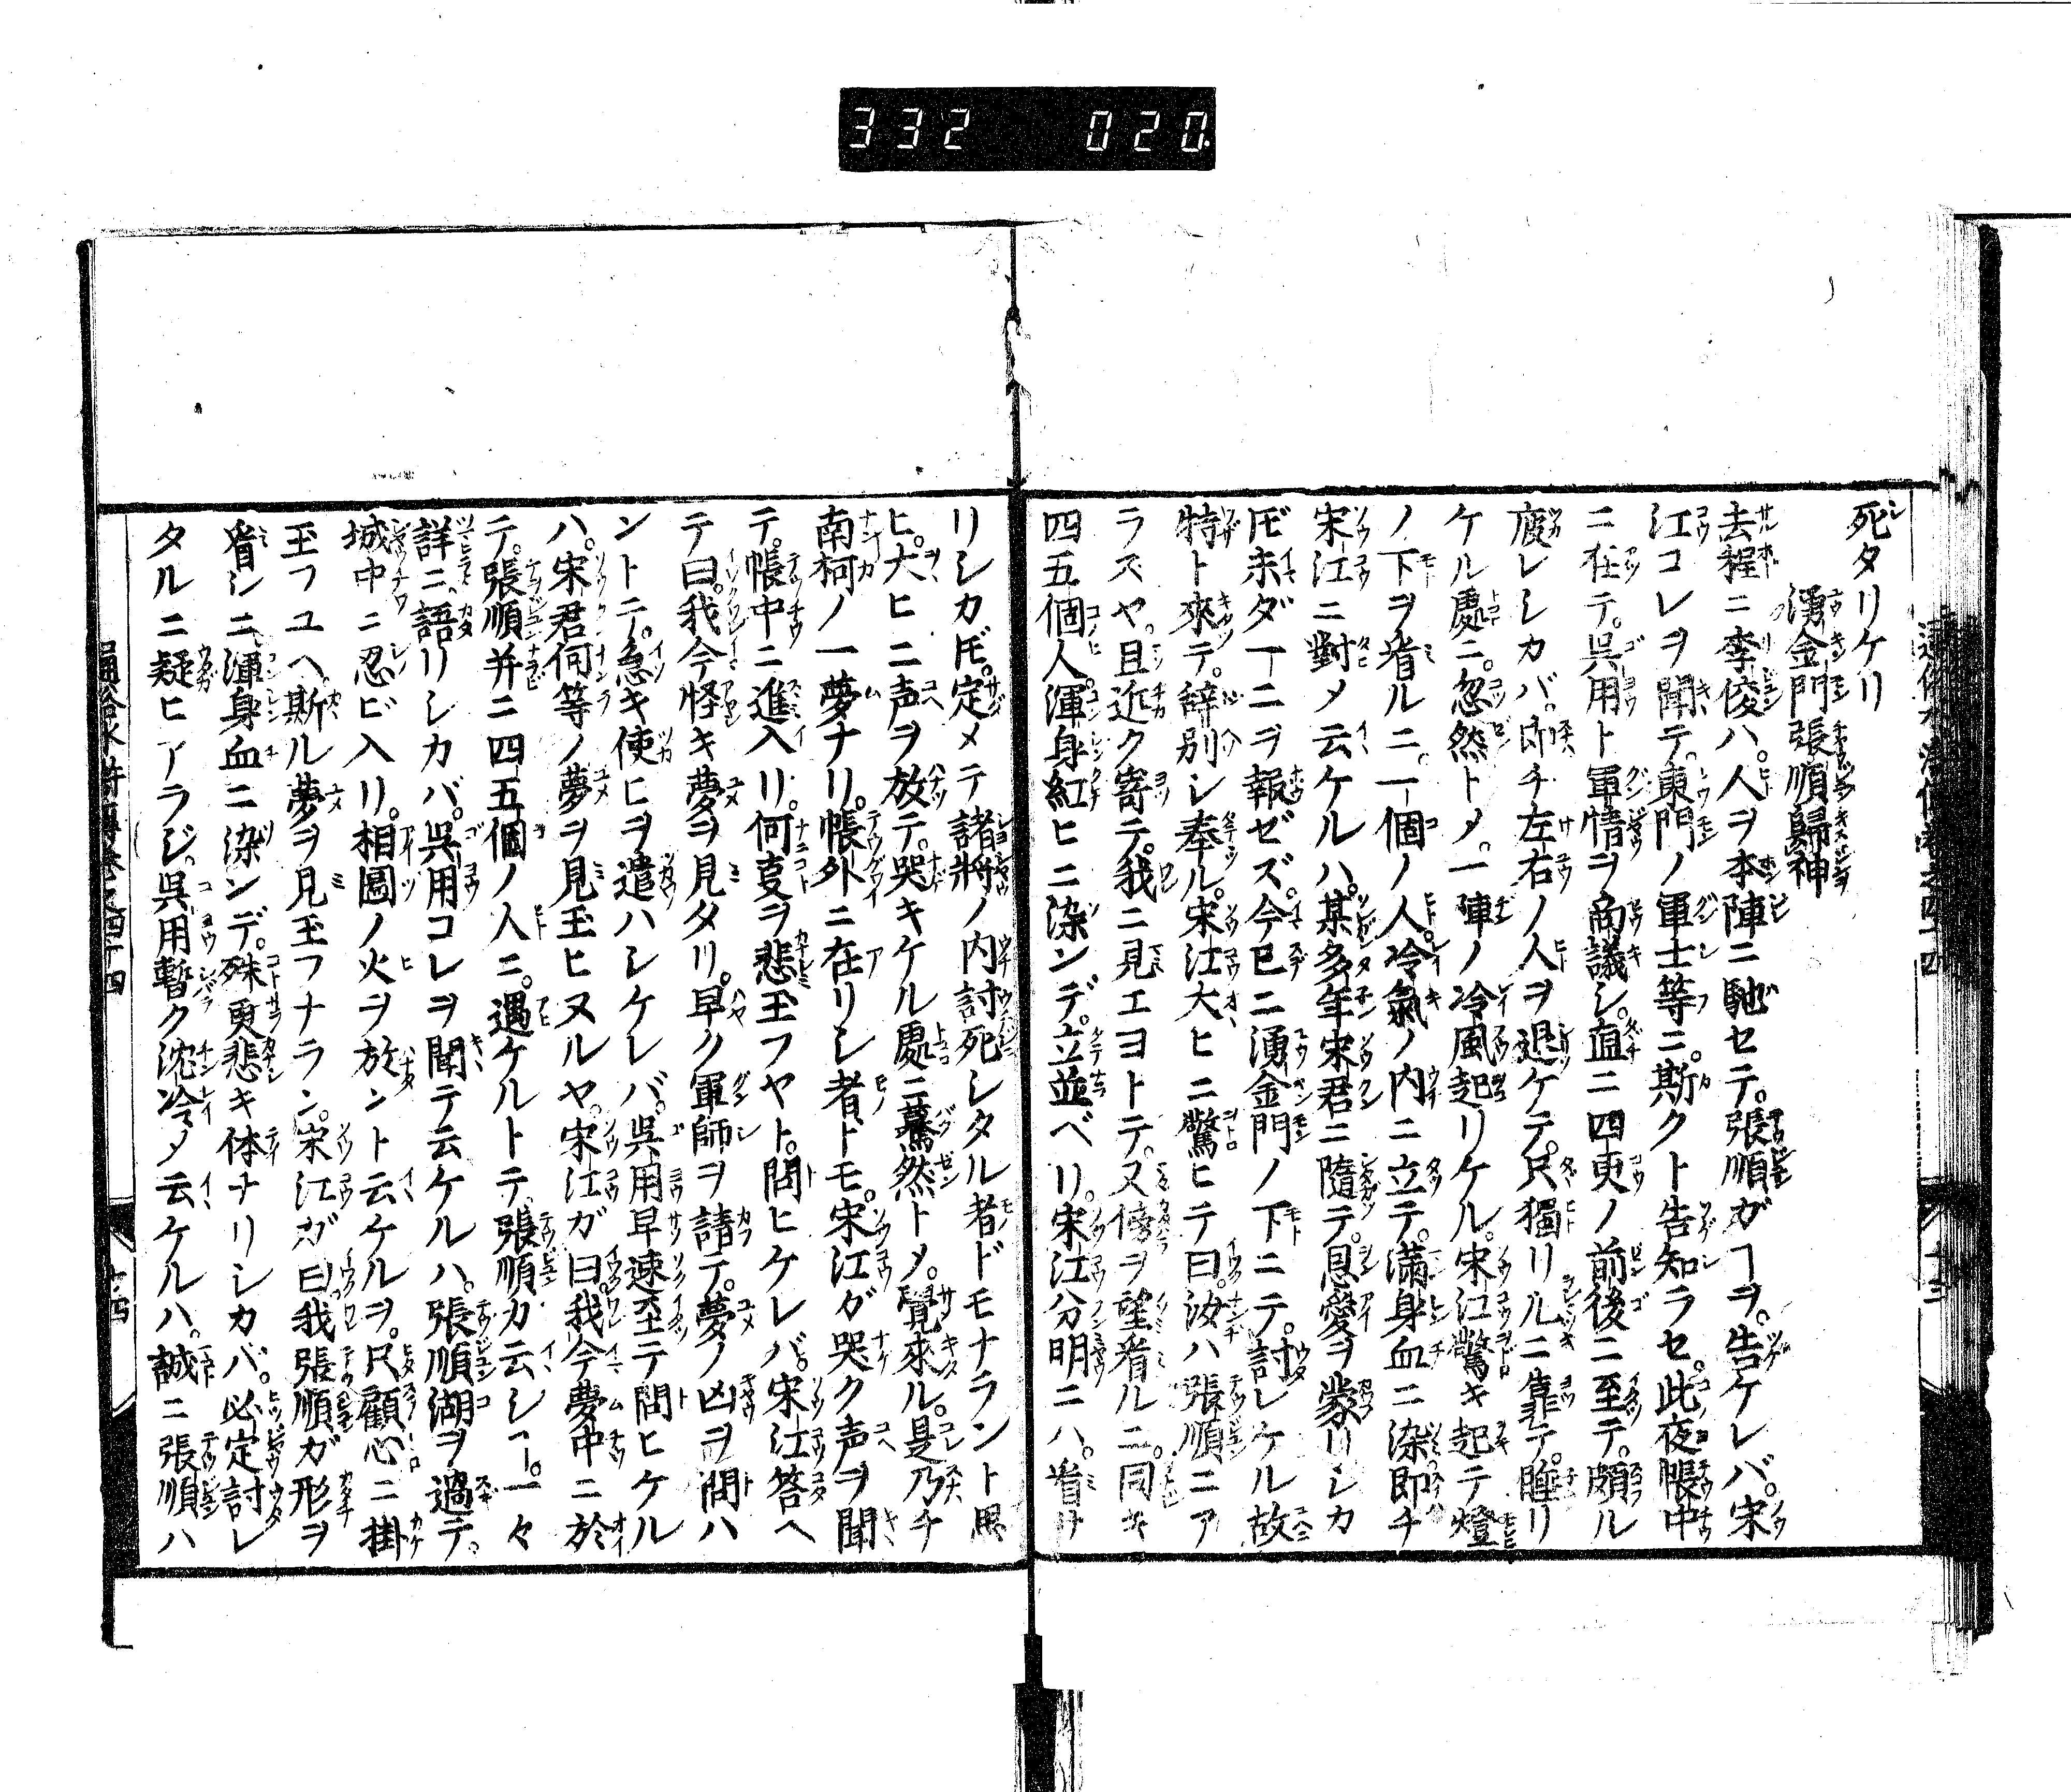 332 020
死タリケリ
湧金門張順歸神
去程ニ李俊ハ。人ヲ本陣ニ馳セテ。張順ガヿヲ。告ケレバ。宋
江コレヲ聞テ。東門ノ軍士等ニ。斯クト告知ラセ。此夜帳中
ニ在テ。呉用ト軍情ヲ商議シ。直ニ四更ノ前後ニ至テ。頗ル
疲レシカバ。即チ左右ノ人ヲ退ケテ。只獨リ几ニ靠テ。睡リ
ケル處ニ。忽然トメ。一陣ノ冷風起リケル。宋江驚キ起テ燈
ノ下ヲ看ルニ。一個ノ人冷氣ノ内ニ立テ。滿身血ニ染即チ
宋江ニ對メ云ケルハ。某多年宋君ニ隨テ。恩愛ヲ蒙リシカ
𪜈未ダ一ニヲ報ゼズ。今已ニ湧金門ノ下ニテ。討レケル故
特ト來テ。辞別シ奉ル。宋江大ヒニ驚ヒテ曰。汝ハ張順ニア
ラズヤ。且近ク寄テ。我ニ見エヨトテ。又傍ヲ望看ルニ。同キ
四五個人。渾身紅ヒニ染ンデ。立並ベリ。宋江分明ニハ。看サ
リシカ𪜈。定メテ諸將ノ内討死シタル者ドモナラント思
ヒ。大ヒニ声ヲ放テ。哭キケル處ニ驀然トメ。覺來ル。是乃チ
南柯ノ一夢ナリ。帳外ニ在リシ者トモ。宋江ガ哭ク声ヲ聞
テ。帳中ニ進入リ。何夏ヲ悲玉フヤト。問ヒケレバ。宋江答ヘ
テ曰。我今怪キ夢ヲ見タリ。早ク軍師ヲ請テ。夢ノ凶ヲ問ハ
ントニテ。急キ使ヒヲ遣ハシケレバ。呉用早速至テ問ヒケル
ハ。宋君何等ノ夢ヲ見玉ヒヌルヤ。宋江ガ曰。我今夢中ニ於
テ。張順并ニ四五個ノ人ニ。遇ケルトテ。張順カ云シヿ。一々
詳ニ語リシカバ。呉用コレヲ聞テ云ケルハ。張順湖ヲ過テ。
城中ニ忍ビ入リ。相圖ノ火ヲ放ント云ケルヲ。只顧心ニ掛
玉フユヘ。斯ル夢ヲ見玉フナラン。宋江ガ曰我張順ガ形ヲ
看シニ渾身血ニ染ンデ。殊更悲キ体ナリシカバ。必定討レ
タルニ疑ヒアラジ。呉用暫ク沈吟メ云ケルハ。誠ニ張順ハ